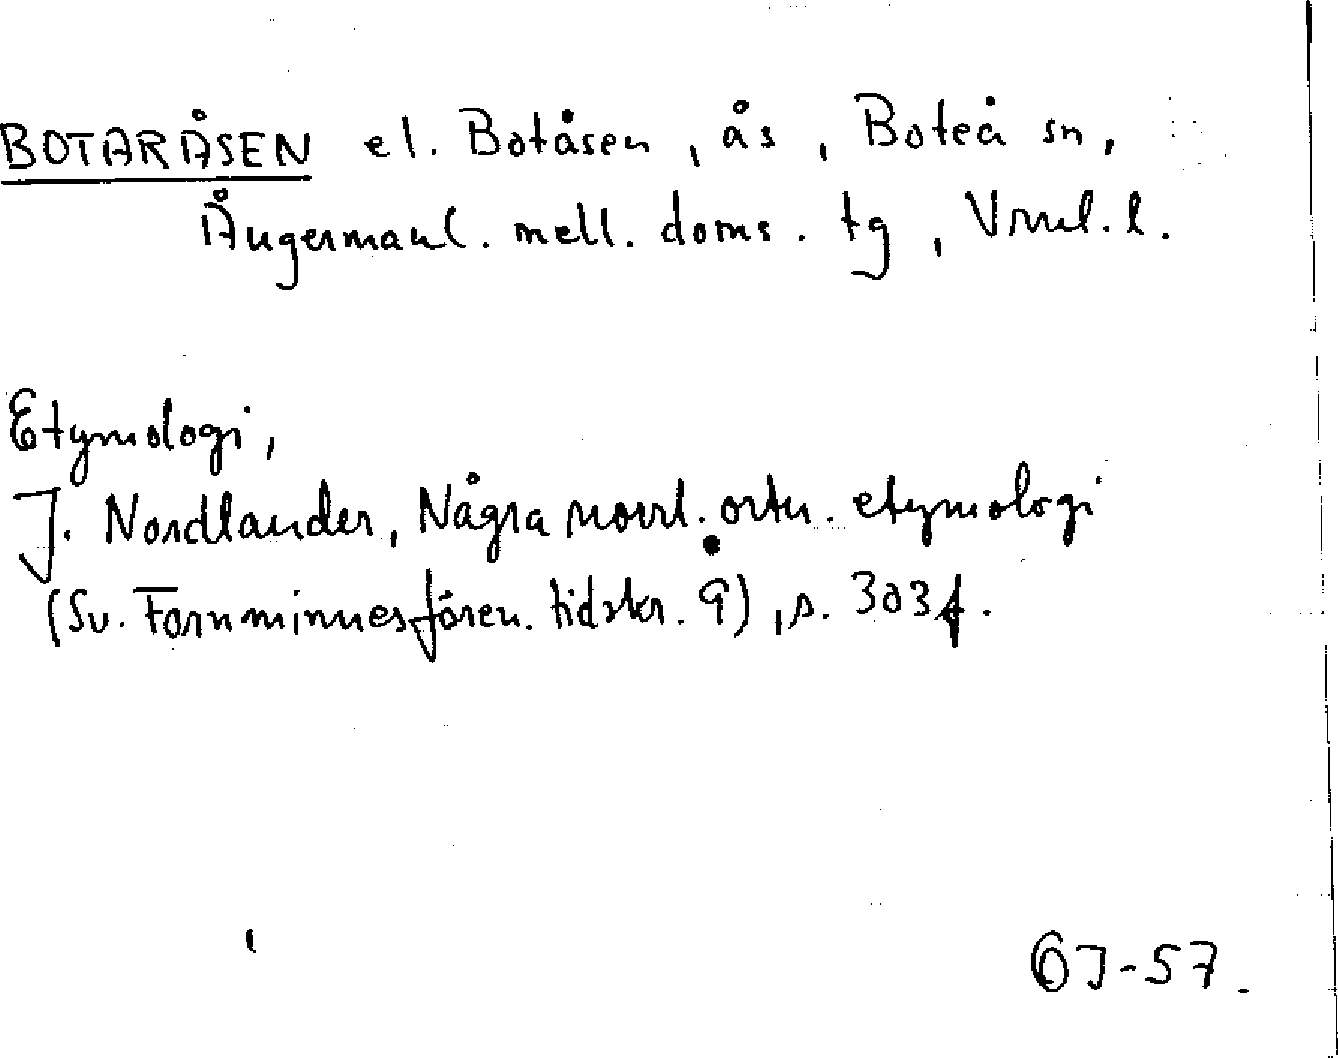 BOTARÅSEN el. Botåsen, ås, Boteå sn,
Ångermanl. mell. doms. tg, Vrnl. l.
Etymologi,
J. Nordlander, Några norrl. ortn. etymologi
(Sv. Fornminnesfören. tidskr. 9), s. 303 f.
GJ-57.